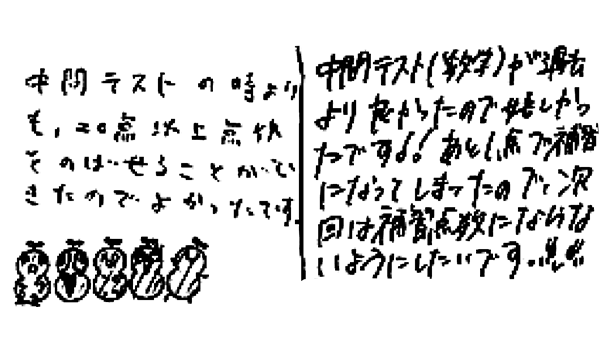 中間テストの時より
も，20点以上点伏
をのばせることがで
きたのでよかったです。
中間テスト(数学)が過去
より良かったので嬉しかっ
たです!あと1点で補習
になってしまったので、次
回は補習点数にならな
いようにしたいです。